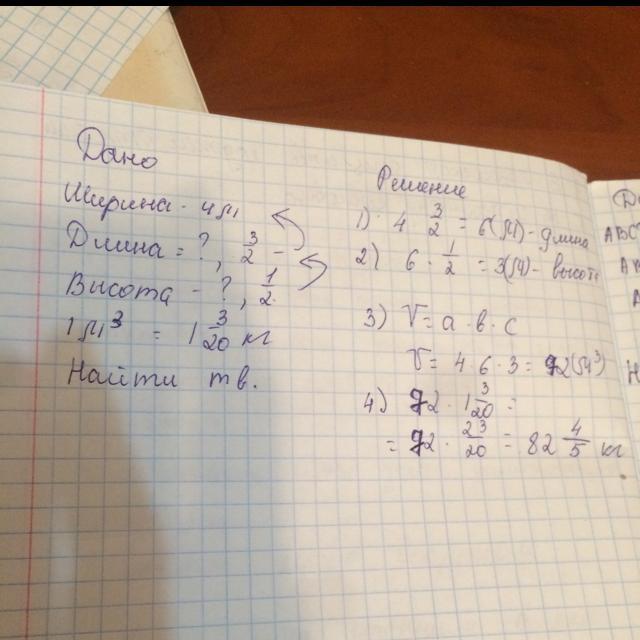 Дано
Ширина - 4 м
Длина = ?, 3/2
Высота - ?, 1/2
1 м³ = 1 3/20 кг
Найти m в.
Решение
1) 4 · 3/2 = 6 (м) - длина
2) 6 · 1/2 = 3 (м) - высота
3) V = a · b · c
V = 4 · 6 · 3 = 72 (м³)
4) 72 · 1 3/20 =
= 72 · 23/20 = 82 4/5 кг